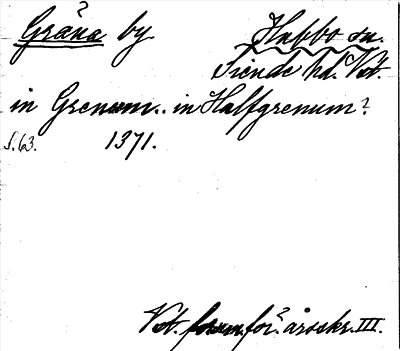 Gräna by
Hubbo sn.
Siende hd. Vst.
in Grenum.. in Halfgrenum?
s. 63. 1371.
Vst. fornm.för:s årsskr. III.